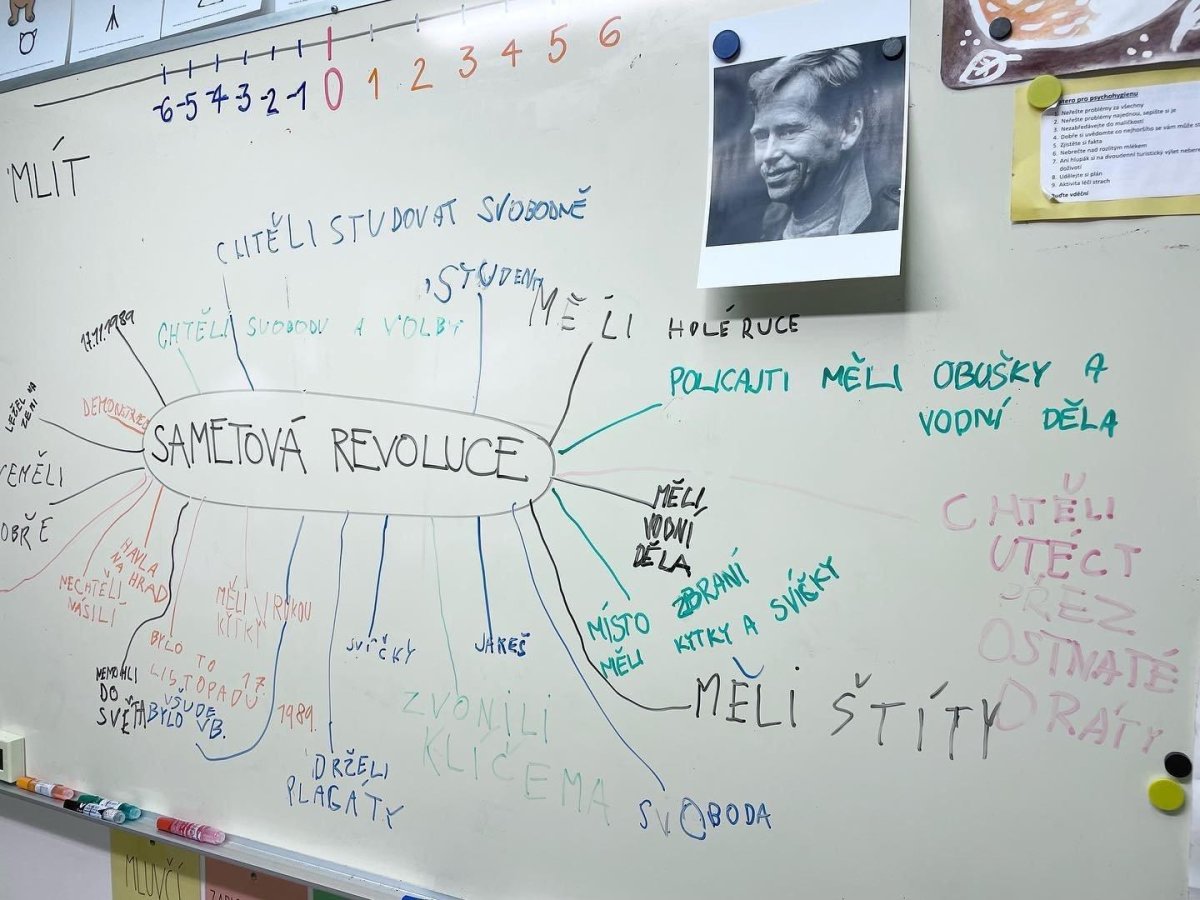 -6 -5 -4 -3 -2 -1 0 1 2 3 4 5 6
MLÍT
atero pro psychohygienu
1. Neřešte problémy za všechny
2. Neřešte problémy najednou, sepište si je
3. Nezabředávejte do maličkostí
4. Dobře si uvědomte co nejhoršího se vám může st
5. Zjistěte si fakta
6. Nebrečte nad rozlitým mlékem
7. Ani hlupák si na dvoudenní turistický výlet nebere
doživotí
8. Udělejte si plán
9. Aktivita léčí strach
Buďte vděční
CHTĚLI STUDOVAT SVOBODNĚ
STUDENTI
17.11.1989
CHTĚLI SVOBODU A VOLBY
MĚLI HOLÉ RUCE
POLICAJTI MĚLI OBUŠKY A
VODNÍ DĚLA
LEŽEL NA
ZEMI
DEMONSTRACE
SAMETOVÁ REVOLUCE
NEMĚLI
OBŘE
MĚLI
VODNÍ
DĚLA
CHTĚLI
UTÉCT
PŘEZ
OSTNATÉ
DRÁTY
HAVLA
NA HRAD
NECHTĚLI
NÁSILÍ
MĚLI V RUKOU
KYTKY
MÍSTO ZBRANÍ
MĚLI KYTKY A SVÍČKY
BYLO TO
LISTOPADU 17.
1989.
SVÍČKY
JAKEŠ
NEMOHLI
DO
SVĚTA
VŠUDE
BYLO VB.
MĚLI ŠTÍTY
ZVONILI
KLÍČEMA
DRŽELI
PLAGÁTY
SVOBODA
MLUVČÍ